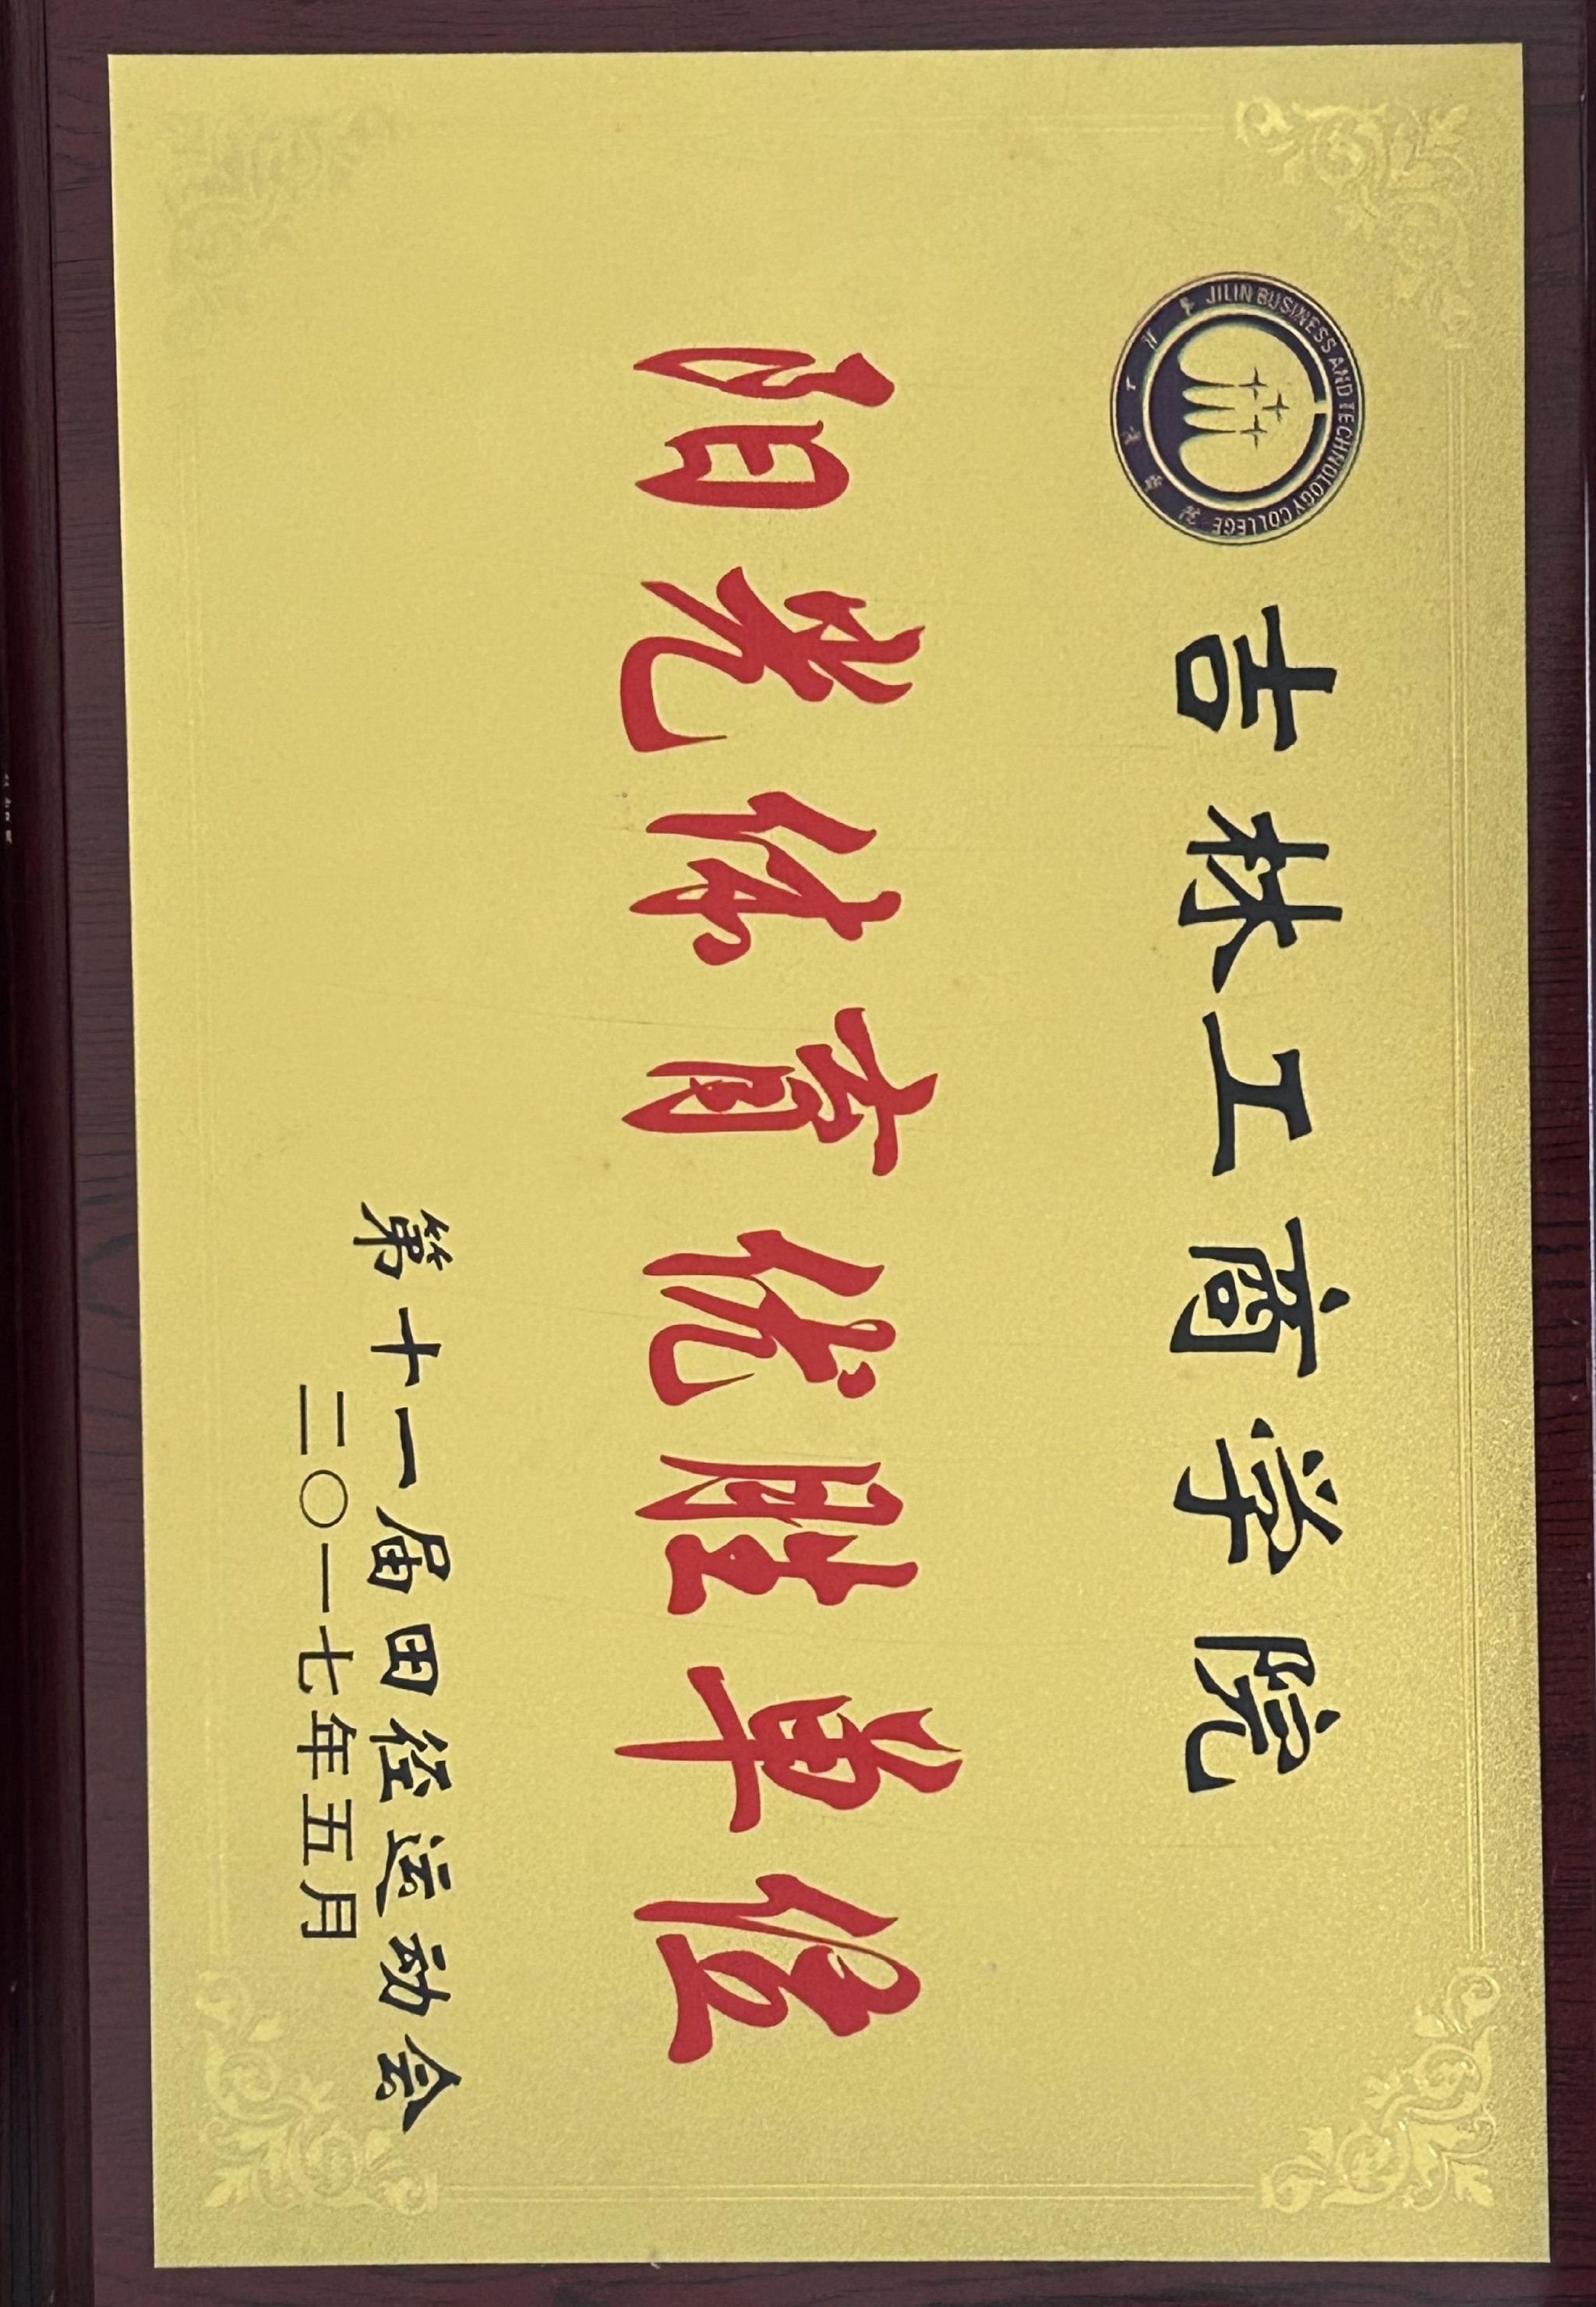 JILIN BUSINESS AND TECHNOLOGY COLLEGE
吉林工商学院
吉林工商学院
阳光体育优胜单位
第十一届田径运动会
二〇一七年五月